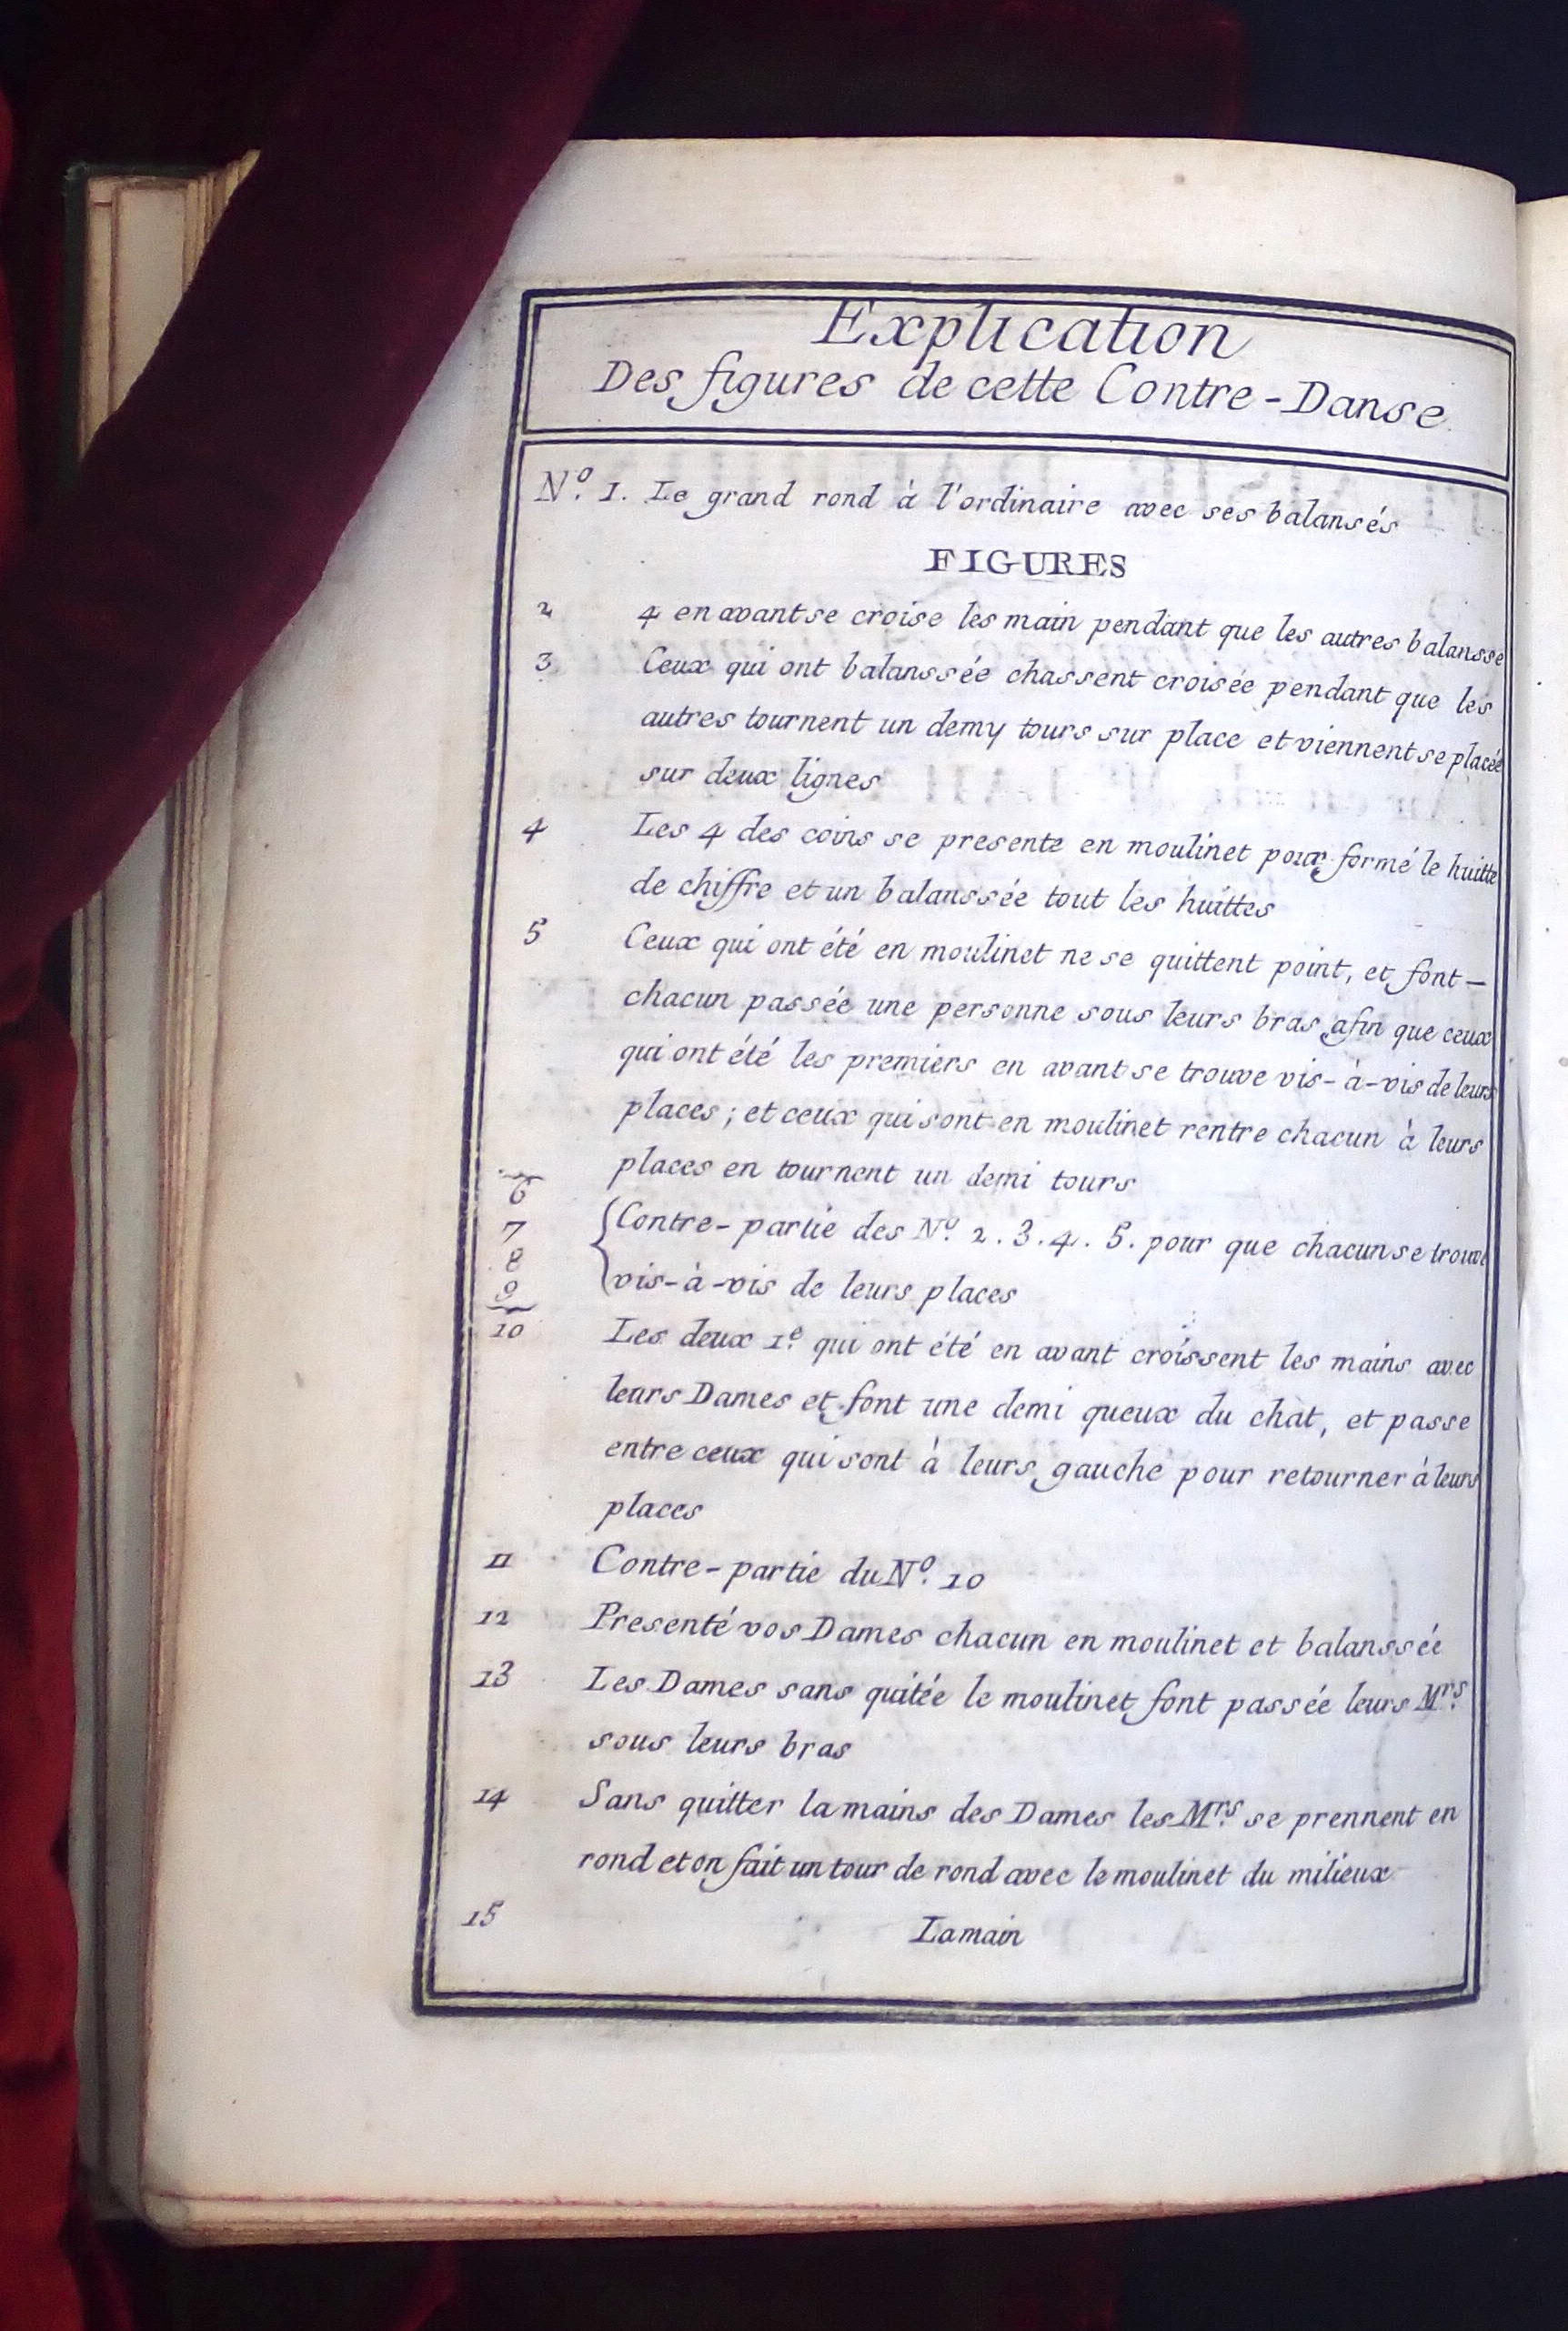 Explication
Des figures de cette Contre-Danse
Nº. 1. Le grand rond à l'ordinaire avec ses balansés
FIGURES
2 4 en avant se croise les main pendant que les autres balansse
3 Ceux qui ont balanssée chassent croisée pendant que les
autres tournent un demy tours sur place et viennent se placée
sur deux lignes
4 Les 4 des coins se presente en moulinet pour formé le huitte
de chiffre et un balanssée tout les huittes
5 Ceux qui ont été en moulinet ne se quittent point, et font—
chacun passée une personne sous leurs bras afin que ceux
qui ont été les premiers en avant se trouve vis-à-vis de leurs
places ; et ceux qui sont en moulinet rentre chacun à leurs
places en tournent un demi tours
6
7 Contre-partie des Nº. 2. 3. 4. 5. pour que chacun se trouve
8
9 vis-à-vis de leurs places
10 Les deux 1e. qui ont été en avant croissent les mains avec
leurs Dames et font une demi queux du chat, et passe
entre ceux qui sont à leurs gauche pour retourner à leurs
places
11 Contre-partie du Nº. 10
12 Presenté vos Dames chacun en moulinet et balanssée
13 Les Dames sans quitée le moulinet font passée leurs Mrs.
sous leurs bras
14 Sans quitter la mains des Dames les Mrs. se prennent en
rond et on fait un tour de rond avec le moulinet du milieux
15 La main